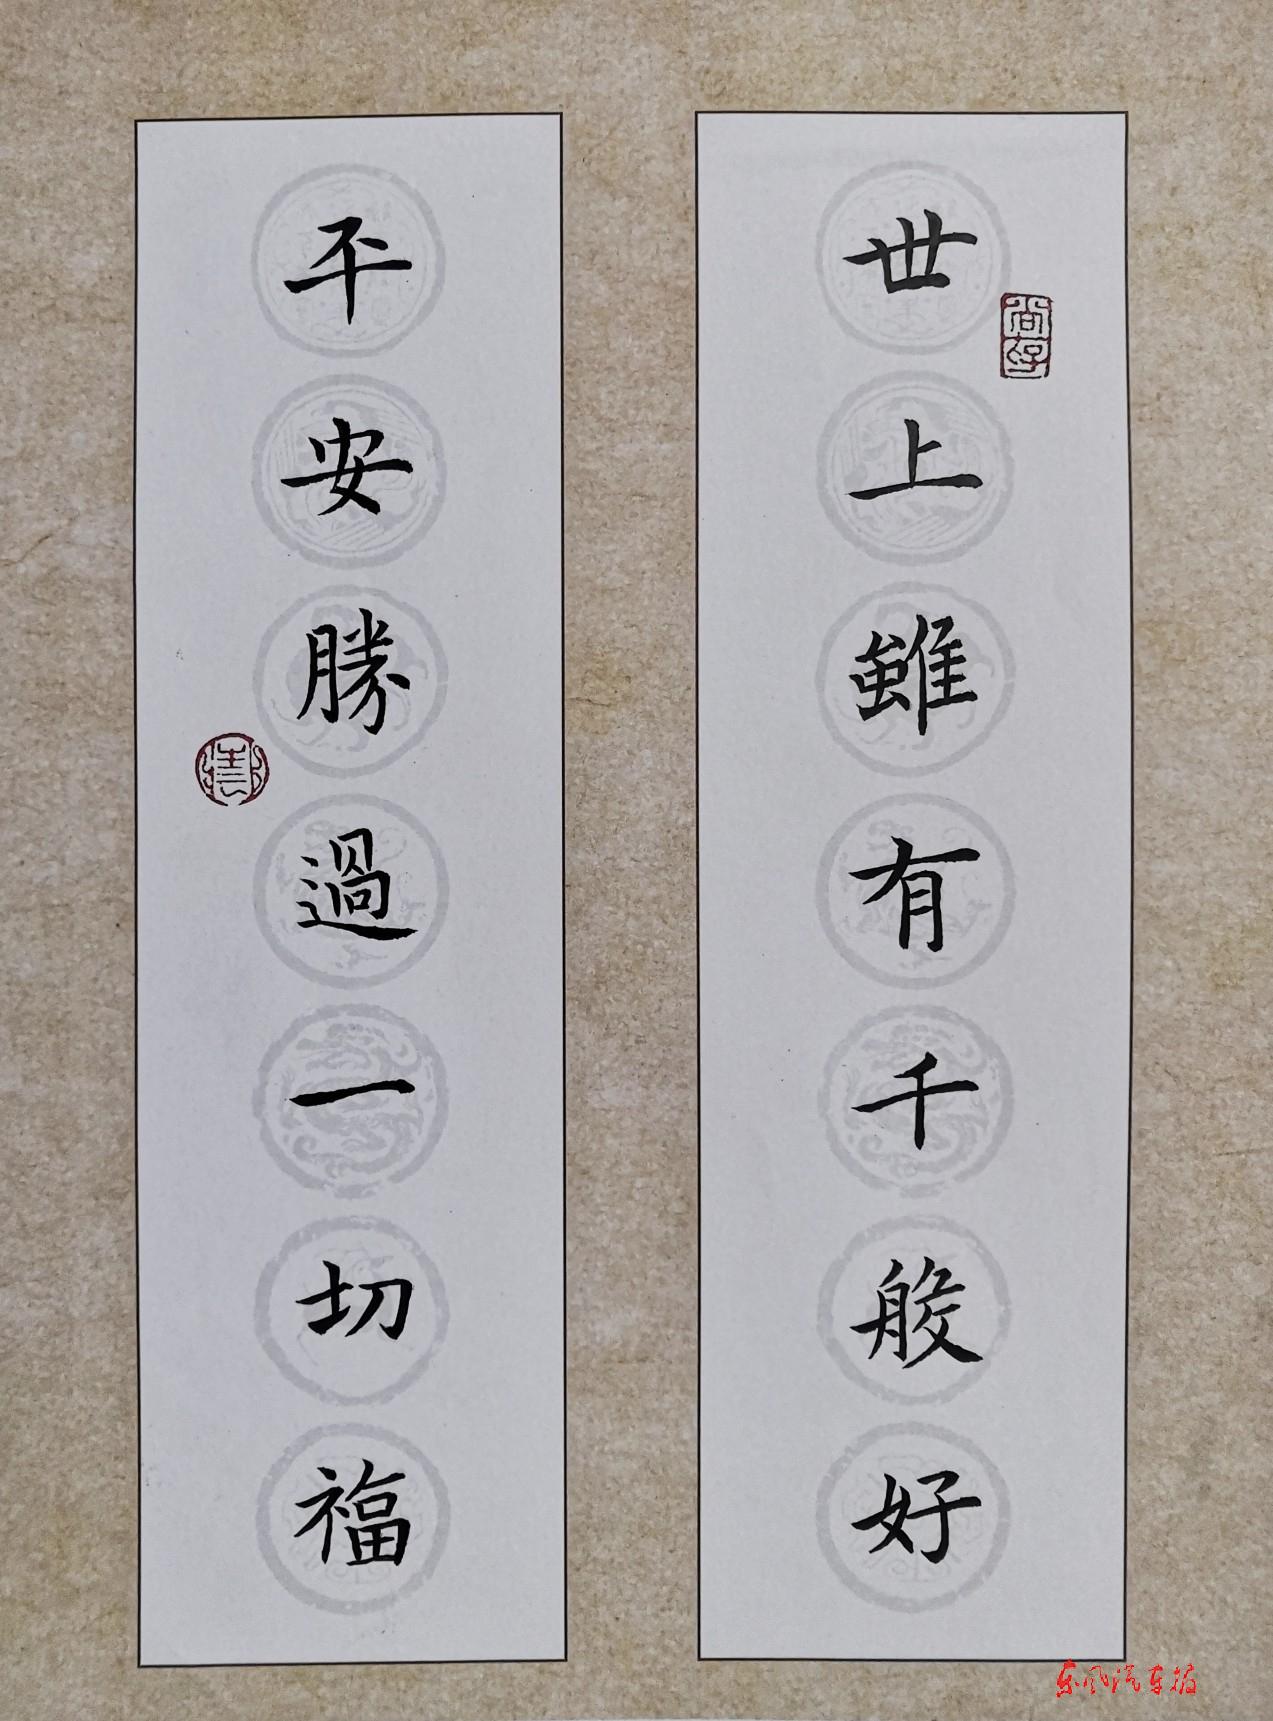 世上雖有千般好
平安勝過一切福
尚好
东风汽车报